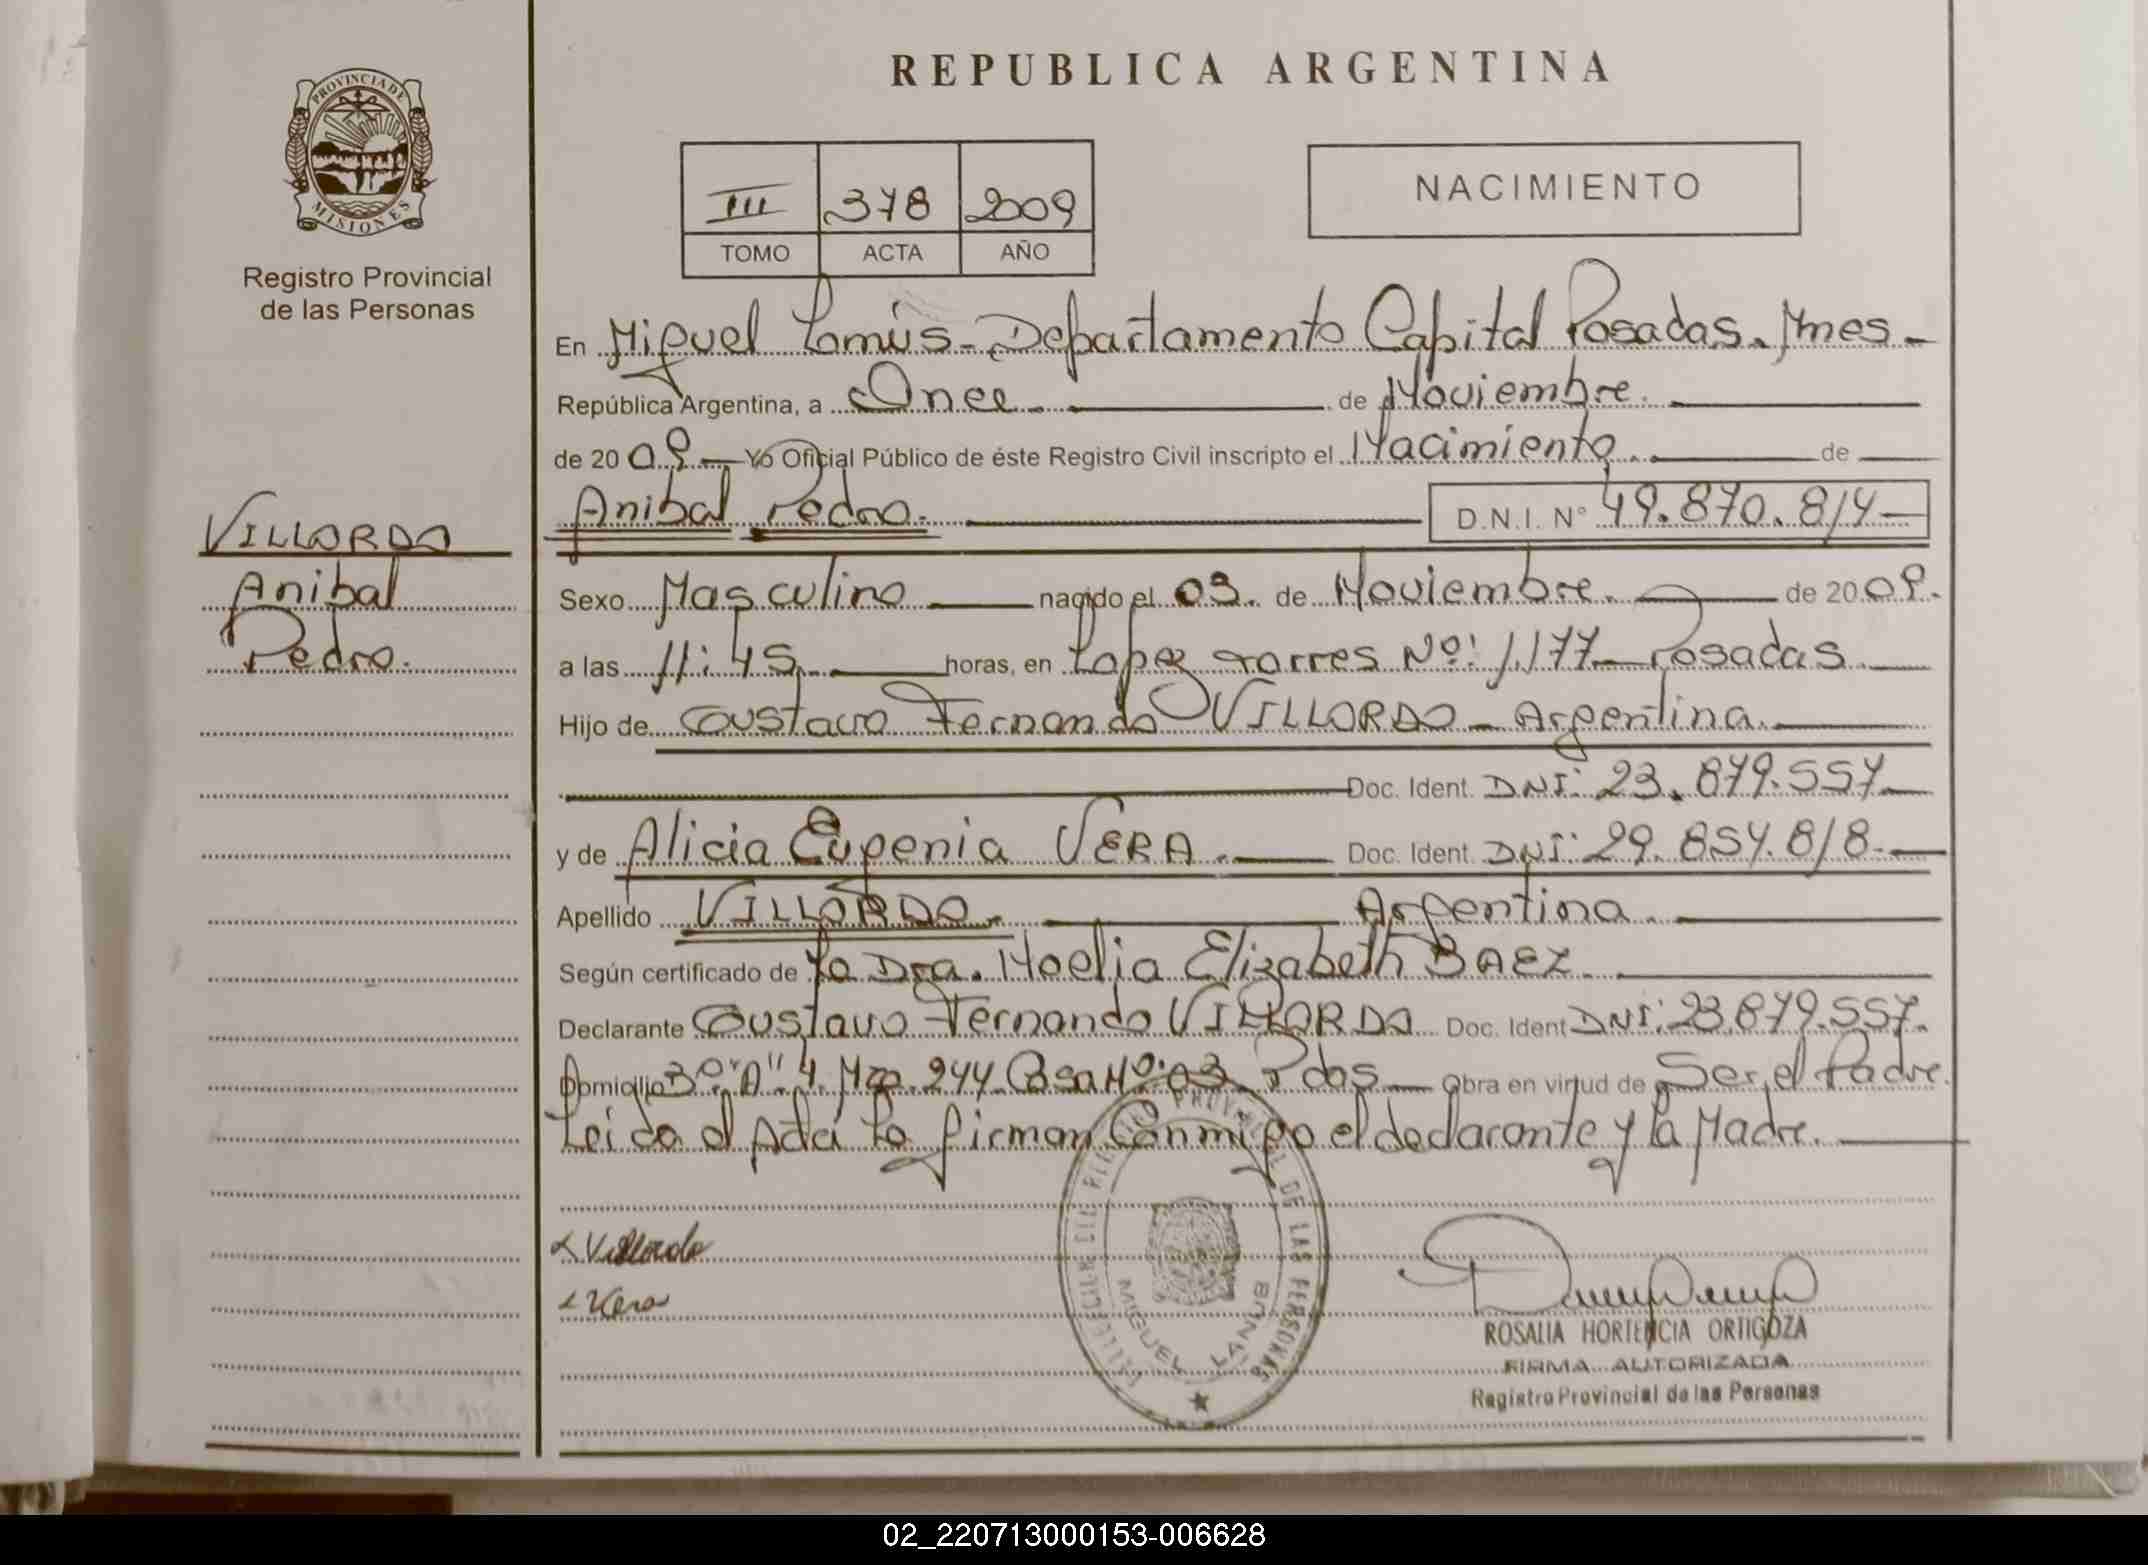 REPUBLICA ARGENTINA
PROVINCIA DE MISIONES
Registro Provincial
de las Personas
III 378 2009
TOMO ACTA AÑO
NACIMIENTO
En Miguel Lanús - Departamento Capital Posadas. Mnes -
República Argentina, a Once de Noviembre.
de 2009 Yo Oficial Público de éste Registro Civil inscripto el Nacimiento. de
Anibal Pedro. D.N.I. N° 49.870.814
VILLORDO
Anibal
Pedro.
Sexo Masculino nacido el 03. de Noviembre. de 2009.
a las 11:45 horas, en Lopez torres Nº: 1.177 - Posadas.
Hijo de Gustavo Fernando VILLORDO - Argentina.
Doc. Ident. DNI: 23.879.557
y de Alicia Eugenia VERA. Doc. Ident. DNI: 29.854.818.
Apellido VILLORDO. Argentina.
Según certificado de La Dra. Noelia Elizabeth BAEZ.
Declarante Gustavo Fernando VILLORDO Doc. Ident DNI: 23.879.557.
Domicilio 3º "A" 4. Mza. 244. Casa Nº: 03. Pdas. Obra en virtud de Ser el Padre.
Leido el Acta La firman Conmigo el declarante y La Madre.
Villordo
Vera
REGISTRO PROVINCIAL DE LAS PERSONAS
MIGUEL LANUS
ROSALIA HORTENCIA ORTIGOZA
FIRMA AUTORIZADA
Registro Provincial de las Personas
02_220713000153-006628